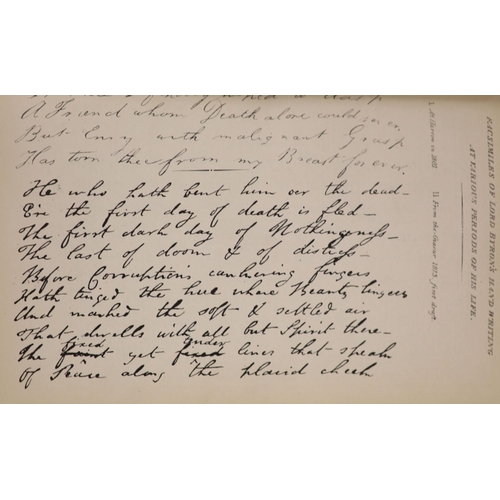 A Friend whom Death alone could sever.
But Envy with malignant Grasp
Has torn thee from my Breast for ever.
He who hath bent him oer the dead—
Ere the first day of death is fled—
The first dark day of Nothingness—
The last of doom & of distress—
Before Corruption's cankering fingers
Hath tinged the hue where Beauty lingers
And marked the soft & settled air
That dwells with all but Spirit there—
fixed tender
The faint yet fixed lines that speak
Of Peace along the placid cheek
FACSIMILES OF LORD BYRON'S HAND WRITING
AT VARIOUS PERIODS OF HIS LIFE.
From the Giaour 1813 first draft